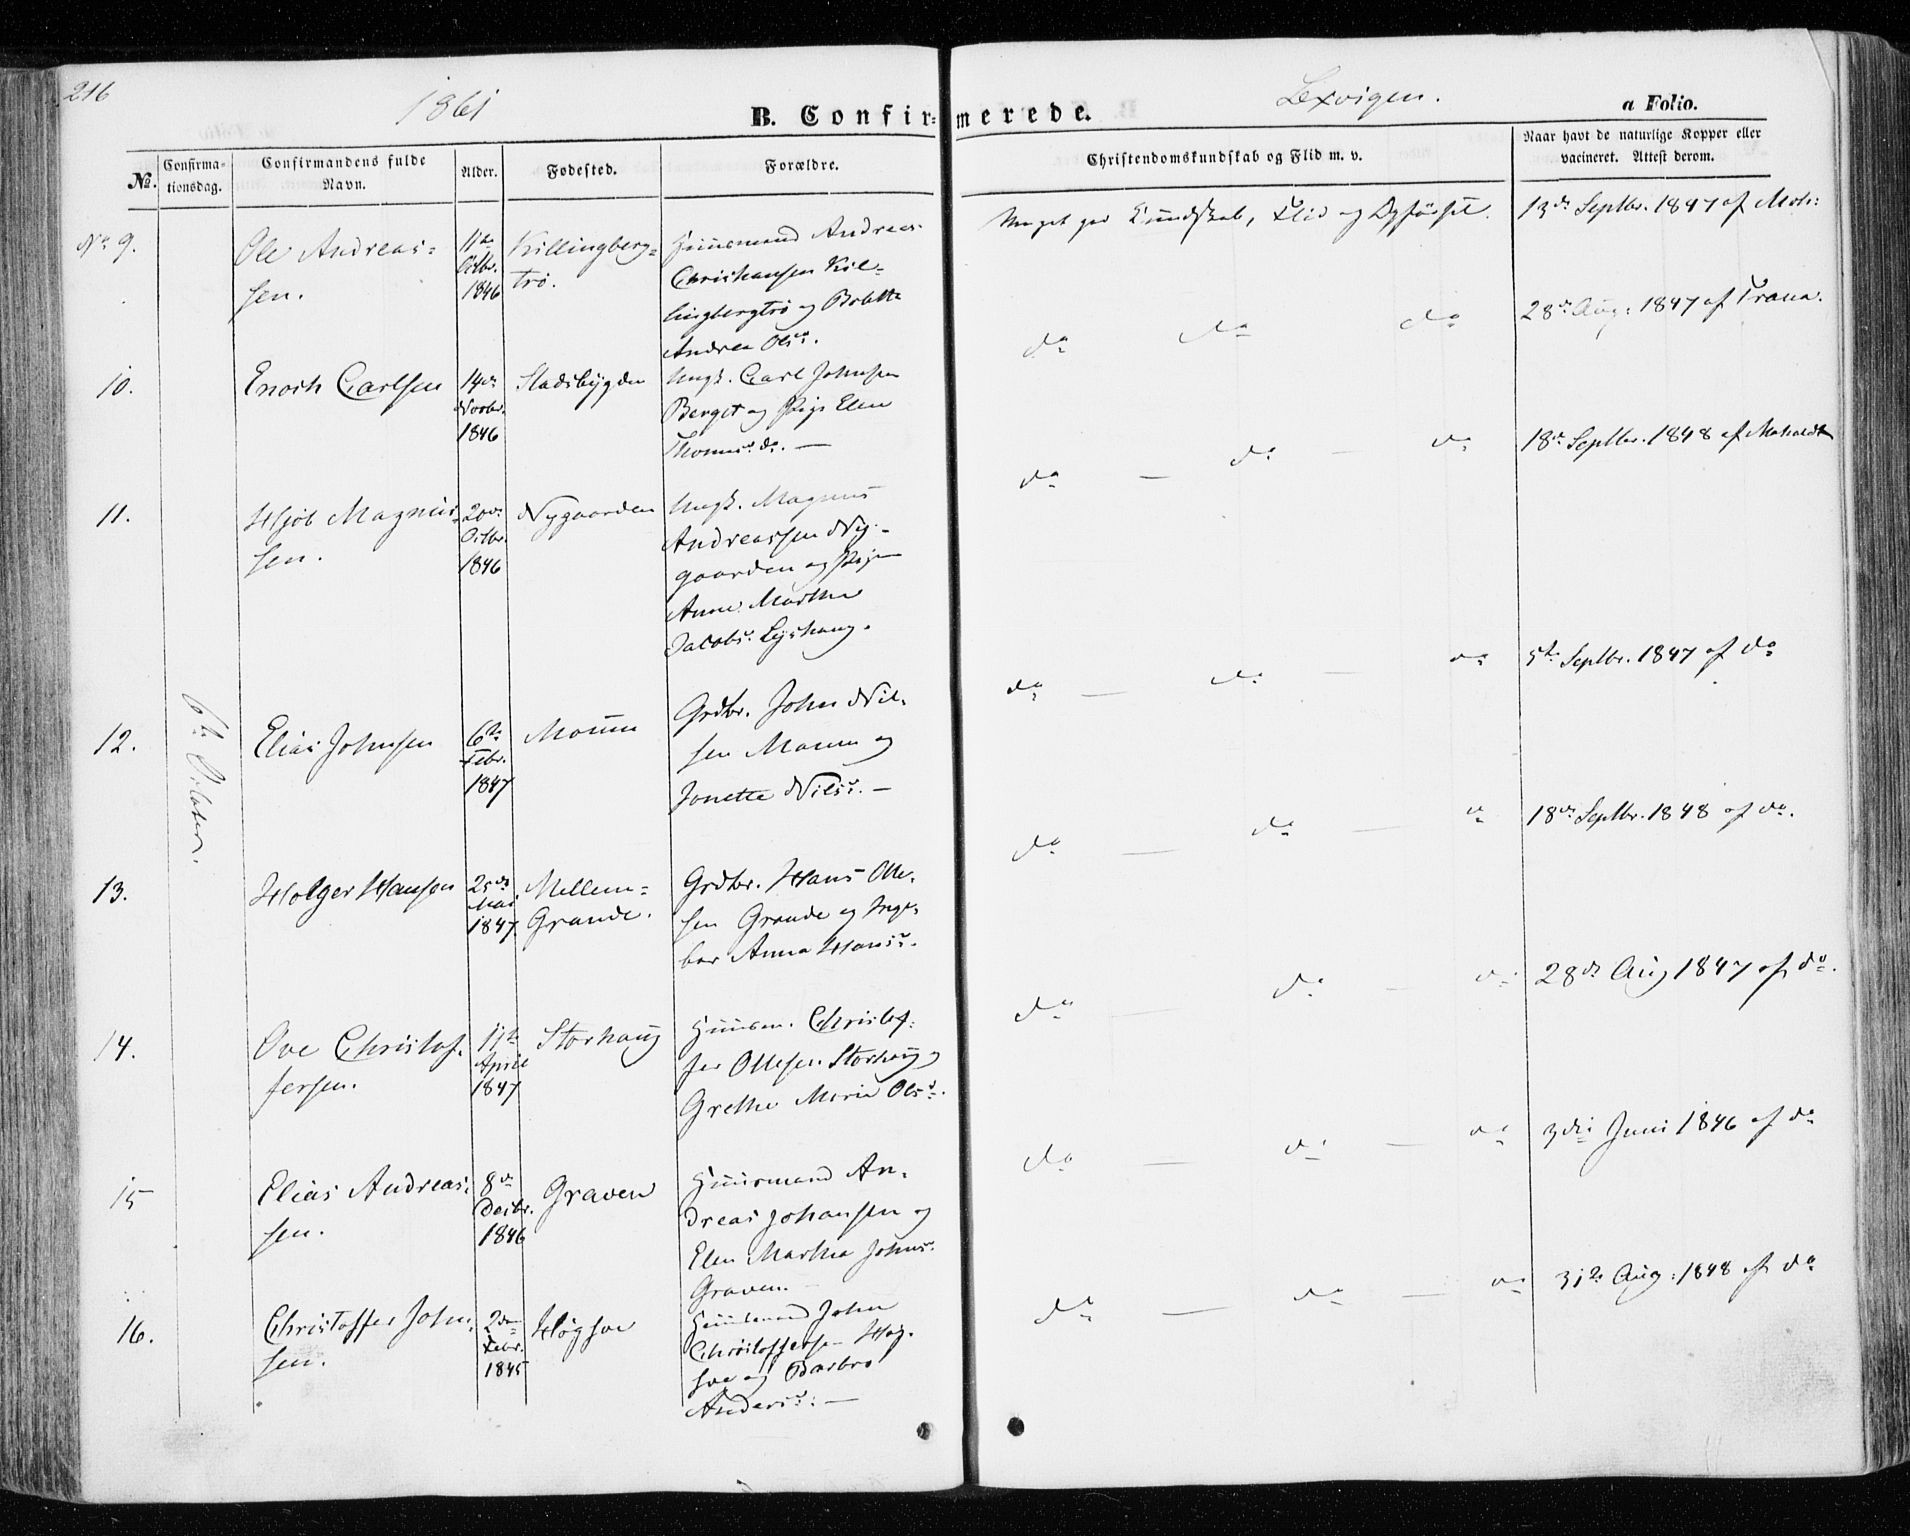 216
1861
B. Confir=merede.
Lexvigen.
a Folio.
No.
Confirma-
tionsdag.
Confirmandens fulde
Navn.
Alder.
Fødested.
Forældre.
Christendomskundskab og Flid m. v.
Naar havt de naturlige Kopper eller
vacineret. Attest derom.
6te October.
No 9.
Ole Andreas=
sen.
11te
Octbr.
1846
Killingberg=
trø.
Huusmand Andreas
Christiansen Kil=
lingbergtrø og
Andrea Olsd.
Meget god Kundskab, Flid og Opførsel.
13de Septbr. 1847 af Moh:
10.
Enoch Carlsen
14de
Novbr.
1846
Stadsbygden
Ungk. Carl Johnsen
Berget og Pige Elen
Thomasd. —
do do do
28de Aug: 1847 af Trana.
11.
Hjøb Magnus-
sen.
20de
Octbr.
1846
Nygaarden
Ungk. Magnus
Andreassen Ny-
gaarden og Pige
Anne Martha
Jacobsd.
do — do — do
18de Septbr. 1848 af
12.
Elias Johnsen
6te
Febr.
1847
Mouum
Grdbr. John Niel-
sen Mouum og
Jonetta Nilsd. —
do — do — do
5te Septbr. 1847 af do
13.
Holger Hansen
25de
Mai
1847
Mellem=
Grande.
Grdbr. Hans Olle-
sen Grande og Inge-
bor Anna Hansd.
do — do — do
18de Septbr. 1848 af do.
14.
Ove Christof-
fersen.
11te
April
1847
Storhaug
Huusm. Christof-
fer Ollesen Storhaug og
Grethe Maria Olsd.
do — do — do
28de Aug 1847 af do.
15
Elias Andreas-
sen.
8de
Decbr.
1846
Graven
Huusmand An-
dreas Johansen og
Elen Martha Johnsd.
Graven.
do — do — do
3die Juni 1846 af do
16.
Christoffer John-
sen.
2den
Febr.
1845
Høgsve
Huusmand John
Christoffersen Høg-
sve og Barbro
Andersd. —
do — do — do
31te Aug: 1848 af do